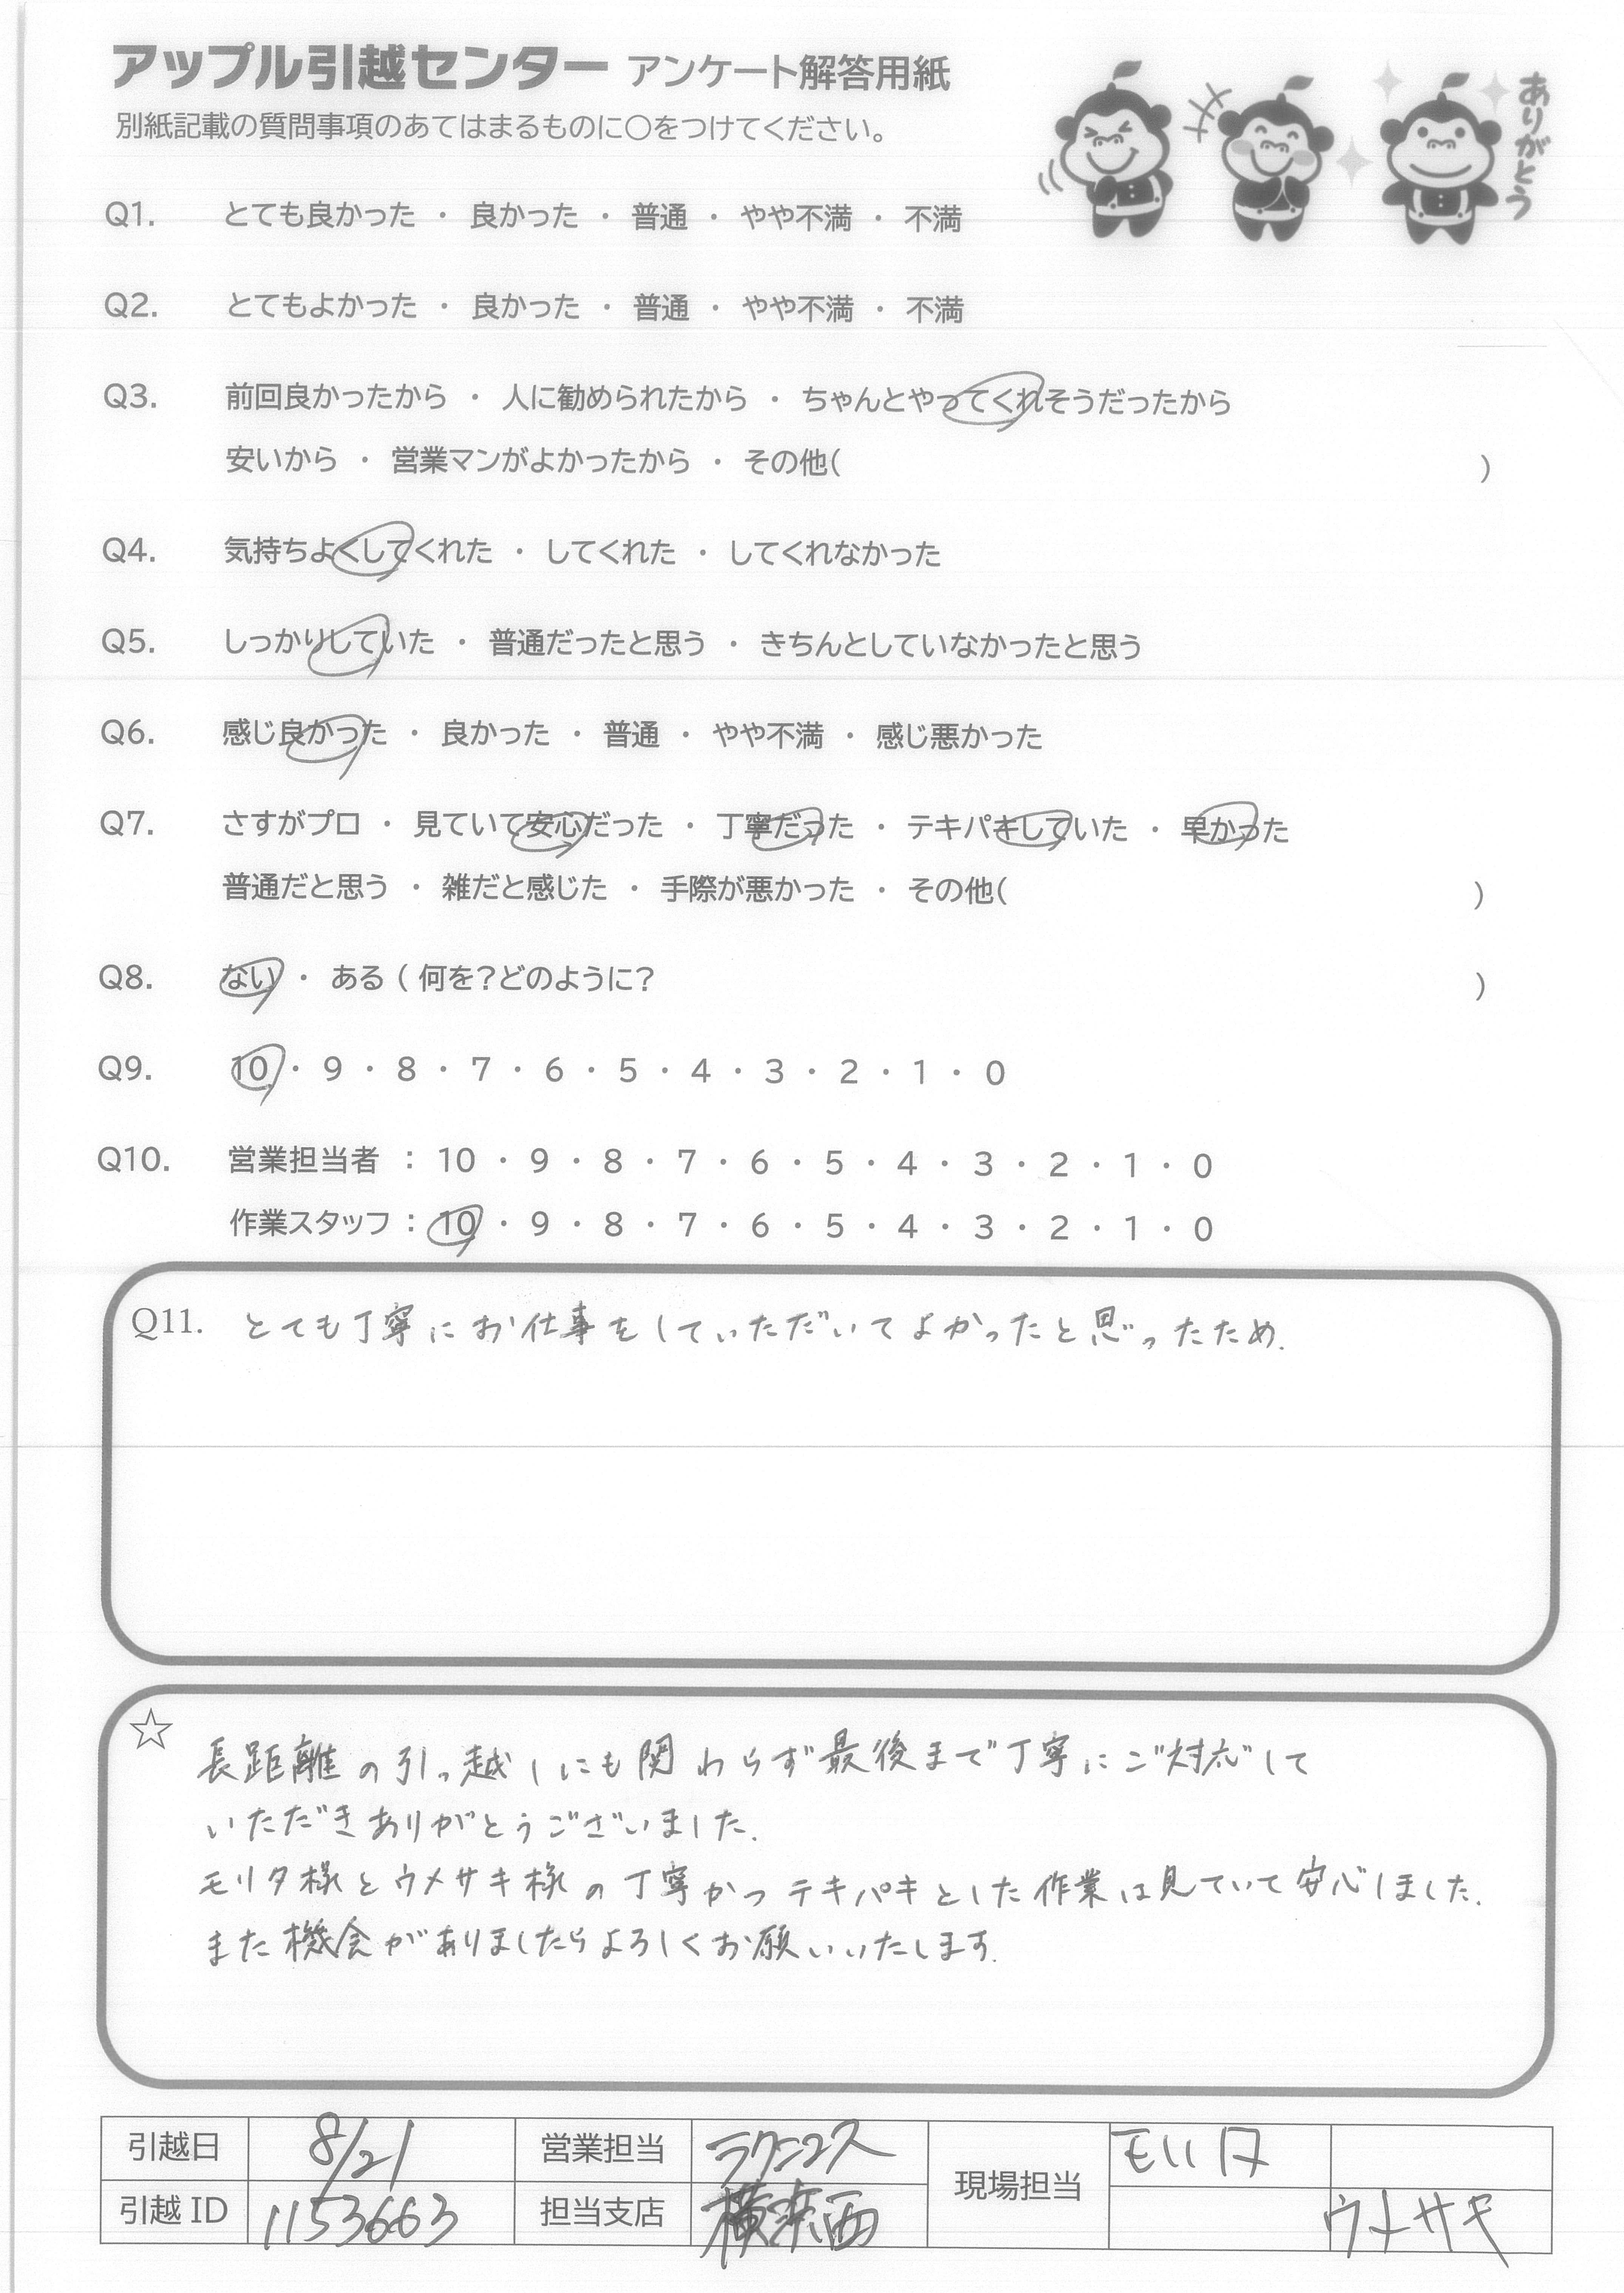 アップル引越センター アンケート解答用紙
別紙記載の質問事項のあてはまるものに〇をつけてください。
ありがとう
Q1. とても良かった ・ 良かった ・ 普通 ・ やや不満 ・ 不満
Q2. とてもよかった ・ 良かった ・ 普通 ・ やや不満 ・ 不満
Q3. 前回良かったから ・ 人に勧められたから ・ ちゃんとやってくれそうだったから
安いから ・ 営業マンがよかったから ・ その他( )
Q4. 気持ちよくしてくれた ・ してくれた ・ してくれなかった
Q5. しっかりしていた ・ 普通だったと思う ・ きちんとしていなかったと思う
Q6. 感じ良かった ・ 良かった ・ 普通 ・ やや不満 ・ 感じ悪かった
Q7. さすがプロ ・ 見ていて安心だった ・ 丁寧だった ・ テキパキしていた ・ 早かった
普通だと思う ・ 雑だと感じた ・ 手際が悪かった ・ その他( )
Q8. ない ・ ある ( 何を?どのように? )
Q9. 10 ・ 9 ・ 8 ・ 7 ・ 6 ・ 5 ・ 4 ・ 3 ・ 2 ・ 1 ・ 0
Q10. 営業担当者 : 10 ・ 9 ・ 8 ・ 7 ・ 6 ・ 5 ・ 4 ・ 3 ・ 2 ・ 1 ・ 0
作業スタッフ : 10 ・ 9 ・ 8 ・ 7 ・ 6 ・ 5 ・ 4 ・ 3 ・ 2 ・ 1 ・ 0
Q11. とても丁寧にお仕事をしていただいてよかったと思ったため.
☆ 長距離の引っ越しにも関わらず最後まで丁寧にご対応して
いただきありがとうございました.
モリタ様とウメサキ様の丁寧かつテキパキとした作業は見ていて安心しました.
また機会がありましたらよろしくお願いいたします.
引越日 8/21 営業担当 現場担当
引越 ID 1153663 担当支店 横浜西 ウメサキ